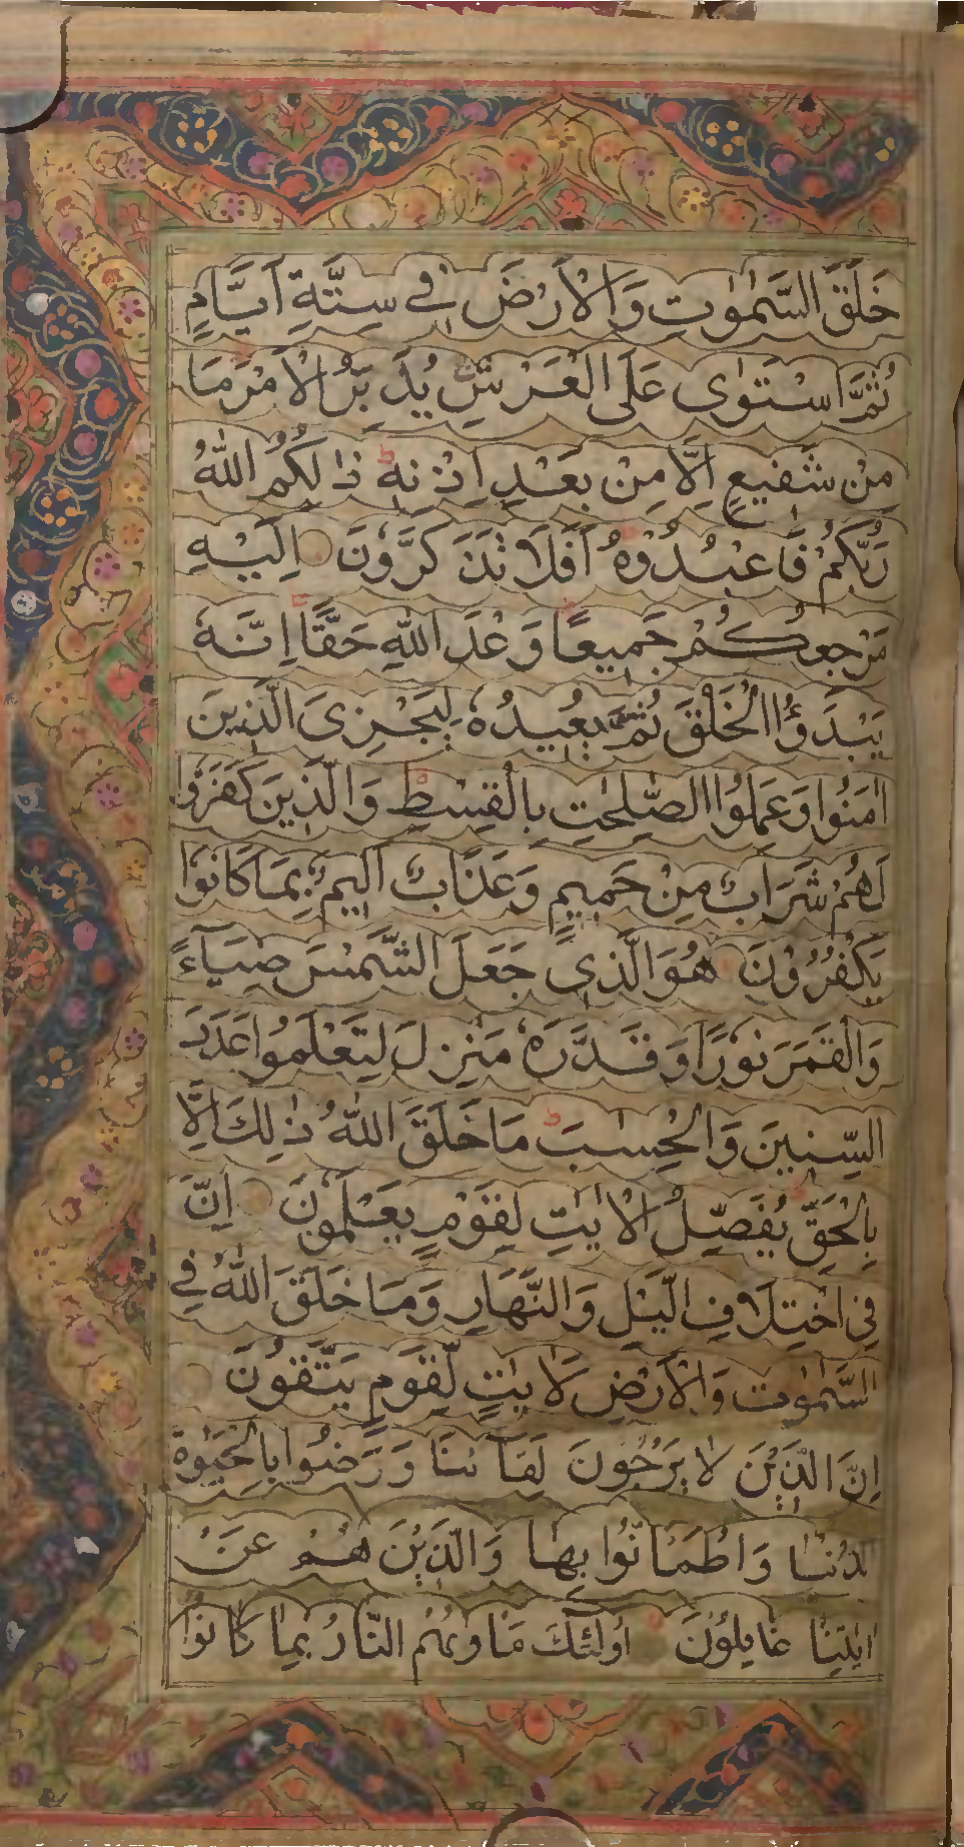 خَلَقَ السَّمٰوٰتِ وَالْاَرْضَ فِے سِتَّةِ اَيَّامٍ
ثُمَّ اسْتَوٰى عَلَى الْعَرْشِ يُدَبِّرُ الْاَمْرَ مَا
مِنْ شَفِيعٍ اِلَّا مِنْ بَعْدِ اِذْنِهٖ ط ذٰلِكُمُ اللّٰهُ
رَبُّكُمْ فَاعْبُدُوْهُ اَفَلَا تَذَكَّرُوْنَ اِلَيْهِ
مَرْجِعُكُمْ جَمِيعًا وَعْدَ اللّٰهِ حَقًّا اِنَّهٗ
يَبْدَؤُا الْخَلْقَ ثُمَّ يُعِيدُهٗ لِيَجْزِىَ الَّذِينَ
اٰمَنُوا وَعَمِلُوا الصّٰلِحٰتِ بِالْقِسْطِ ط وَالَّذِينَ كَفَرُوْا
لَهُمْ شَرَابٌ مِنْ حَمِيمٍ وَعَذَابٌ اَلِيمٌ بِمَا كَانُوْا
يَكْفُرُوْنَ هُوَ الَّذِى جَعَلَ الشَّمْسَ ضِيَاءً
وَالْقَمَرَ نُوْرًا وَقَدَّرَهٗ مَنٰزِلَ لِتَعْلَمُوا عَدَدَ
السِّنِينَ وَالْحِسٰبَ ط مَا خَلَقَ اللّٰهُ ذٰلِكَ اِلَّا
بِالْحَقِّ يُفَصِّلُ الْاٰيٰتِ لِقَوْمٍ يَعْلَمُونَ اِنَّ
فِى اخْتِلَافِ الَّيْلِ وَالنَّهَارِ وَمَا خَلَقَ اللّٰهُ فِى
السَّمٰوٰتِ وَالْاَرْضِ لَاٰيٰتٍ لِّقَوْمٍ يَتَّقُونَ
اِنَّ الَّذِيْنَ لَا يَرْجُونَ لِقَاۤءَنَا وَرَضُوا بِالْحَيٰوةِ
لدُنْيَا وَاطْمَاَنُّوا بِهَا وَالَّذِيْنَ هُمْ عَنْ
اٰيٰتِنَا غَافِلُوْنَ اُولٰۤئِكَ مَاْوٰىهُمُ النَّارُ بِمَا كَانُوْا